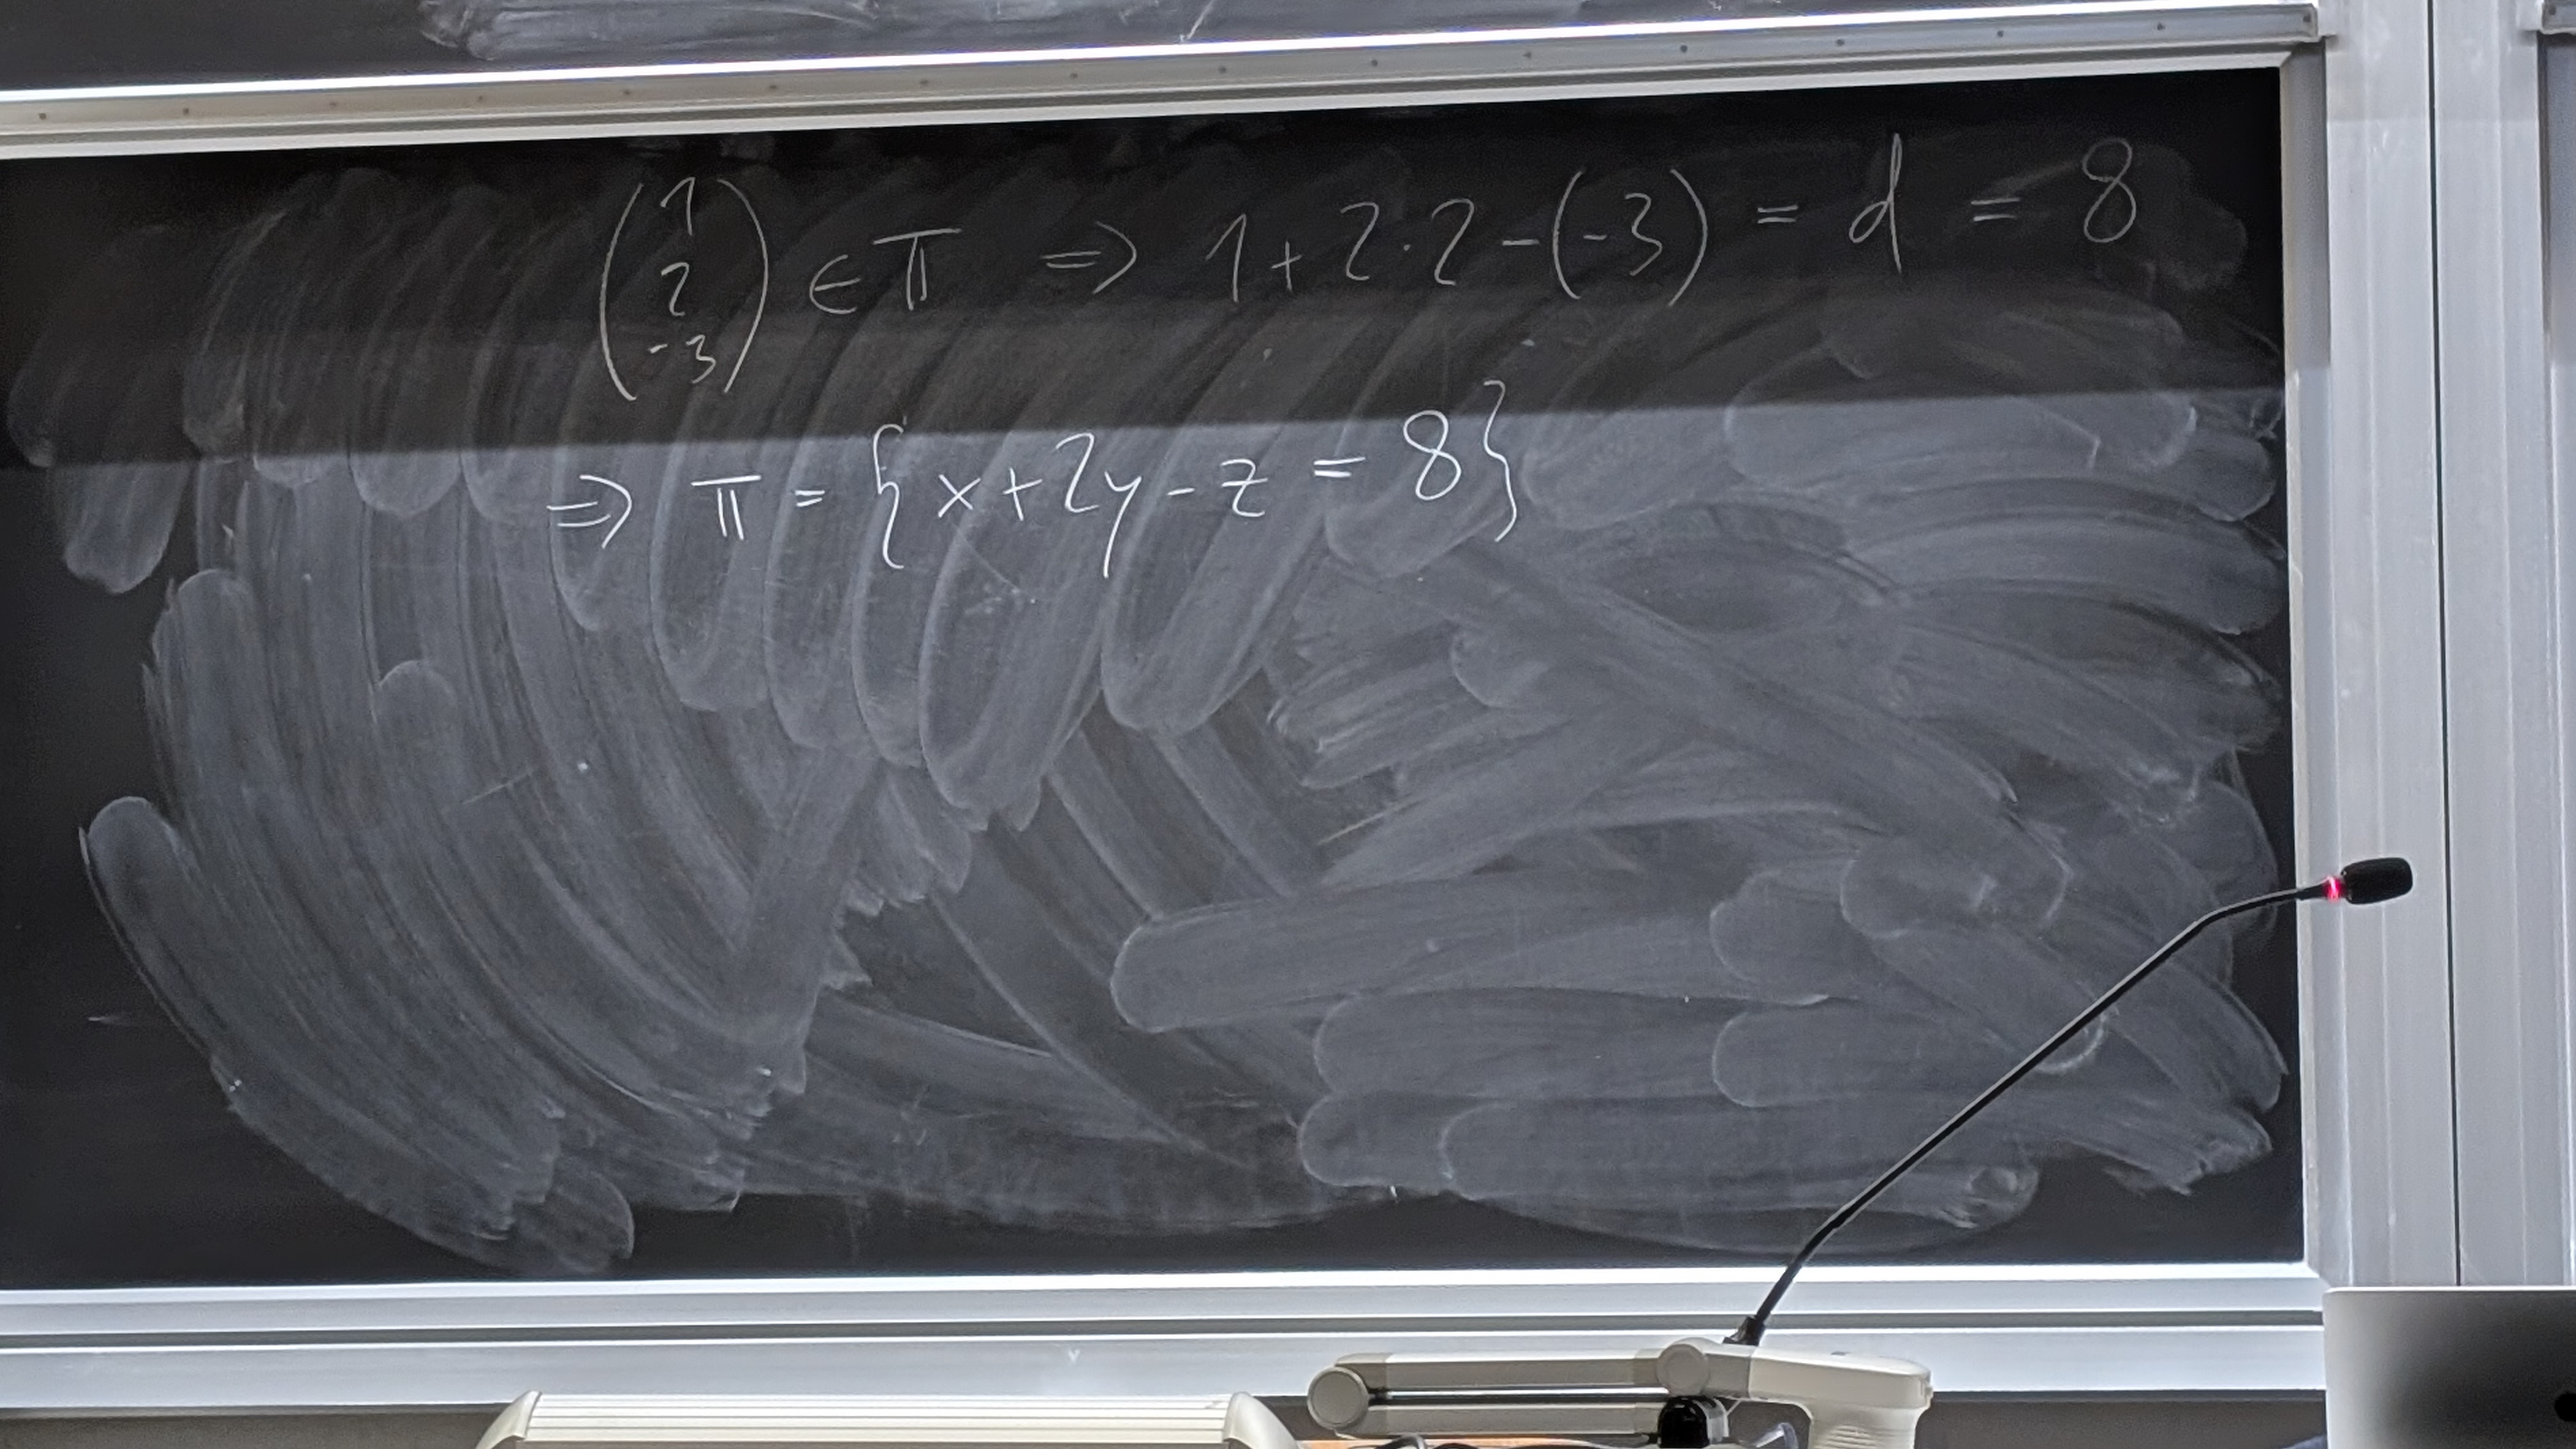 (1 2 -3) ∈ π ⇒ 1 + 2·2 - (-3) = d = 8
⇒ π = {x + 2y - z = 8}